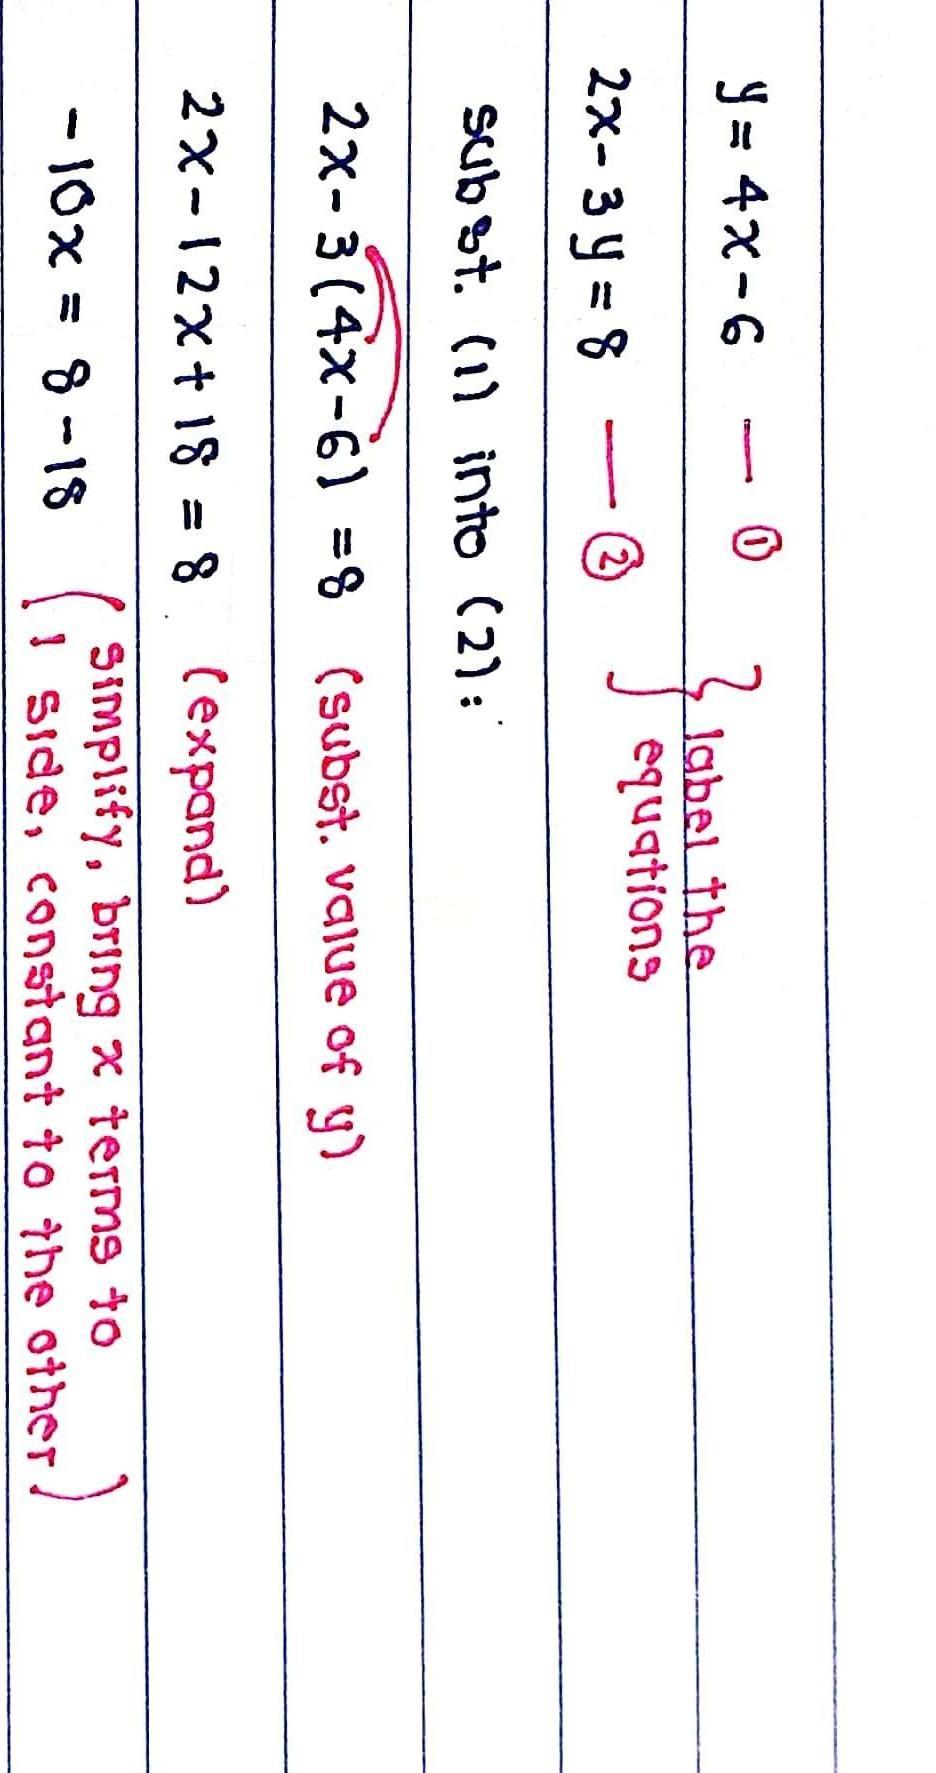 y = 4x - 6 — ① } label the
2x - 3y = 8 — ② } equations
subst. (1) into (2):
2x - 3(4x - 6) = 8 (subst. value of y)
2x - 12x + 18 = 8 (expand)
-10x = 8 - 18 (simplify, bring x terms to
1 side, constant to the other)